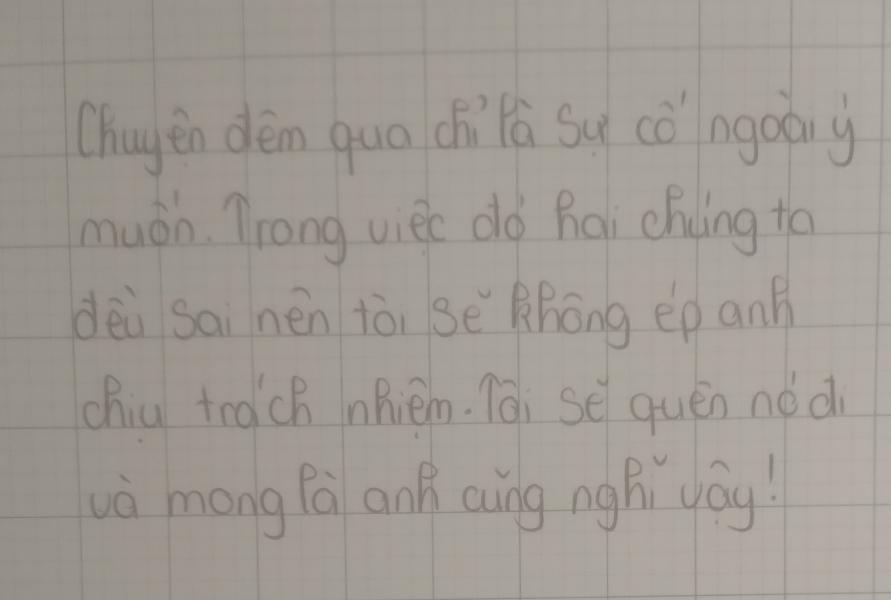 Chuyện đêm qua chỉ là sự cố ngoài ý
muốn. Trong việc đó hai chúng ta
đều sai nên tôi sẽ không ép anh
chịu trách nhiệm. Tôi sẽ quên nó đi
và mong là anh cũng nghĩ vậy!